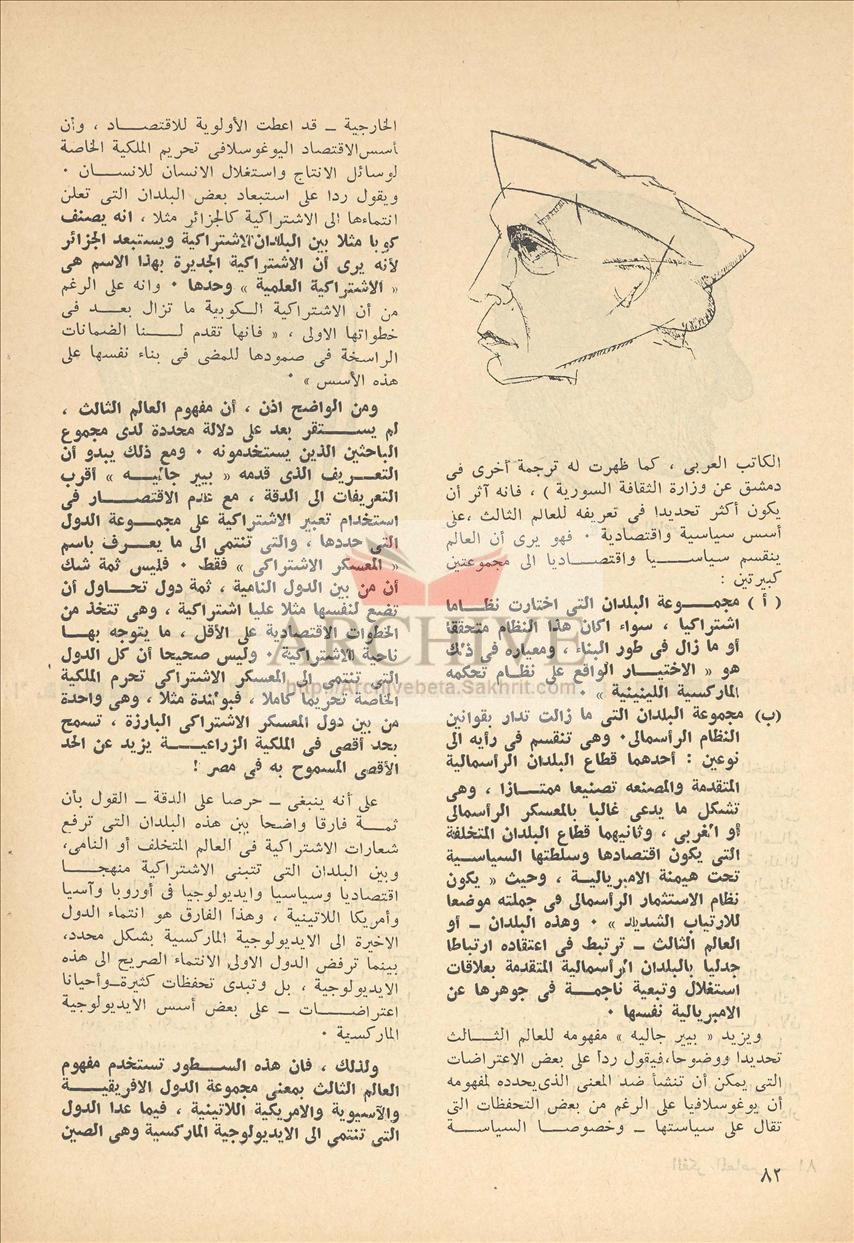 الكاتب العربى ، كما ظهرت له ترجمة أخرى فى
دمشق عن وزارة الثقافة السورية ) ، فانه آثر أن
يكون أكثر تحديدا فى تعريفه للعالم الثالث ،على
أسس سياسية واقتصادية ٠ فهو يرى أن العالم
ينقسم سياسـيا واقتصاديا الى مجموعتين
كبيرتين :
( أ ) مجموعة البلدان التى اختارت نظاما
اشتراكيا ، سواء اكان هذا النظام متحققا
أو ما زال فى طور البناء ، ومعياره فى ذلك
هو « الاختيار الواقع على نظام تحكمه
الماركسية اللينينية » ٠
(ب) مجموعة البلدان التى ما زالت تدار بقوانين
النظام الرأسمالى٠ وهى تنقسم فى رأيه الى
نوعين : أحدهما قطاع البلدان الرأسمالية
المتقدمة والمصنعه تصنيعا ممتازا ، وهى
تشكل ما يدعى غالبا بالمعسكر الرأسمالى
أو الغربى ، وثانيهما قطاع البلدان المتخلفة
التى يكون اقتصادها وسلطتها السياسية
تحت هيمنة الامبريالية ، وحيث « يكون
نظام الاستثمار الرأسمالى فى جملته موضعا
للارتياب الشديد » ٠ وهذه البلدان ـ أو
العالم الثالث ـ ترتبط فى اعتقاده ارتباطا
جدليا بالبلدان الرأسمالية المتقدمة بعلاقات
استغلال وتبعية ناجمة فى جوهرها عن
الامبريالية نفسها ٠
ويزيد « بيير جاليه » مفهومه للعالم الثالث
تحديدا ووضوحا،فيقول ردا على بعض الاعتراضات
التى يمكن أن تنشأ ضد المعنى الذى يحدده لمفهومه
أن يوغوسلافيا على الرغم من بعض التحفظات التى
تقال على سياستها ـ وخصوصا السياسة
الخارجية ـ قد اعطت الأولوية للاقتصاد ، وأن
أسس الاقتصاد اليوغوسلافى تحريم الملكية الخاصة
لوسائل الانتاج واستغلال الانسان للانسان ٠
ويقول ردا على استبعاد بعض البلدان التى تعلن
انتماءها الى الاشتراكية كالجزائر مثلا ، انه يصنف
كوبا مثلا بين البلدان الاشتراكية ويستبعد الجزائر
لأنه يرى أن الاشتراكية الجديرة بهذا الاسم هى
« الاشتراكية العلمية » وحدها ٠ وانه على الرغم
من أن الاشتراكية الكوبية ما تزال بعد فى
خطواتها الاولى ، « فانها تقدم لنا الضمانات
الراسخة فى صمودها للمضى فى بناء نفسها على
هذه الأسس » ٠
ومن الواضح اذن ، أن مفهوم العالم الثالث ،
لم يستقر بعد على دلالة محددة لدى مجموع
الباحثين الذين يستخدمونه ٠ ومع ذلك يبدو أن
التعريف الذى قدمه « بيير جاليه » أقرب
التعريفات الى الدقة ، مع عدم الاقتصار فى
استخدام تعبير الاشتراكية على مجموعة الدول
التى حددها ، والتى تنتمى الى ما يعرف باسم
« المعسكر الاشتراكى » فقط ٠ فليس ثمة شك
أن من بين الدول النامية ، ثمة دول تحاول أن
تضع لنفسها مثلا عليا اشتراكية ، وهى تتخذ من
الخطوات الاقتصادية على الأقل ، ما يتوجه بها
ناحية الاشتراكية ٠ وليس صحيحا أن كل الدول
التى تنتمى الى المعسكر الاشتراكى تحرم الملكية
الخاصة تحريما كاملا ، فبولندة مثلا ، وهى واحدة
من بين دول المعسكر الاشتراكى البارزة ، تسمح
بحد أقصى فى الملكية الزراعية يزيد عن الحد
الأقصى المسموح به فى مصر !
على أنه ينبغى ـ حرصا على الدقة ـ القول بأن
ثمة فارقا واضحا بين هذه البلدان التى ترفع
شعارات الاشتراكية فى العالم المتخلف أو النامى،
وبين البلدان التى تتبنى الاشتراكية منهجا
اقتصاديا وسياسيا وايديولوجيا فى أوروبا وآسيا
وأمريكا اللاتينية ، وهذا الفارق هو انتماء الدول
الاخيرة الى الايديولوجية الماركسية بشكل محدد،
بينما ترفض الدول الاولى الانتماء الصريح الى هذه
الايديولوجية ، بل وتبدى تحفظات كثيرة ـ وأحيانا
اعتراضات ـ على بعض أسس الايديولوجية
الماركسية ٠
ولذلك ، فان هذه السطور تستخدم مفهوم
العالم الثالث بمعنى مجموعة الدول الافريقية
والآسيوية والامريكية اللاتينية ، فيما عدا الدول
التى تنتمى الى الايديولوجية الماركسية وهى الصين
٨٢
ARCHIVE
http://Archivebeta.Sakhrit.com